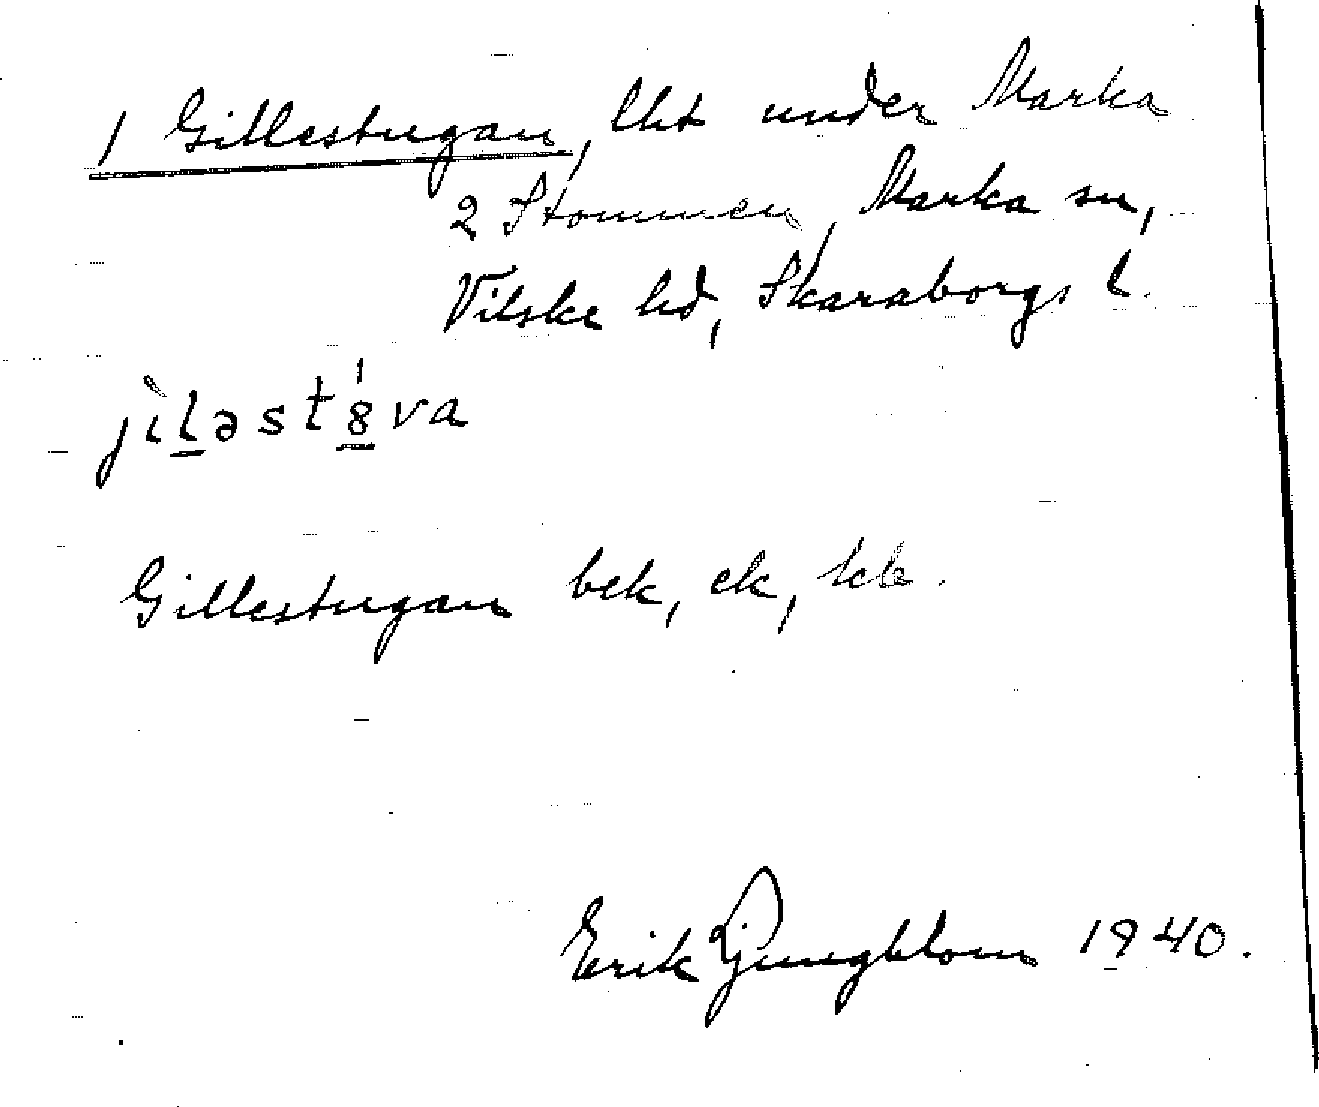 1 Gillestugan, lht under Marka
2 Stommen, Marka sn,
Vilske hd, Skaraborgs l.
jìləst8va
Gillestugan bek, ek,
Erik Ljungblom 1940.